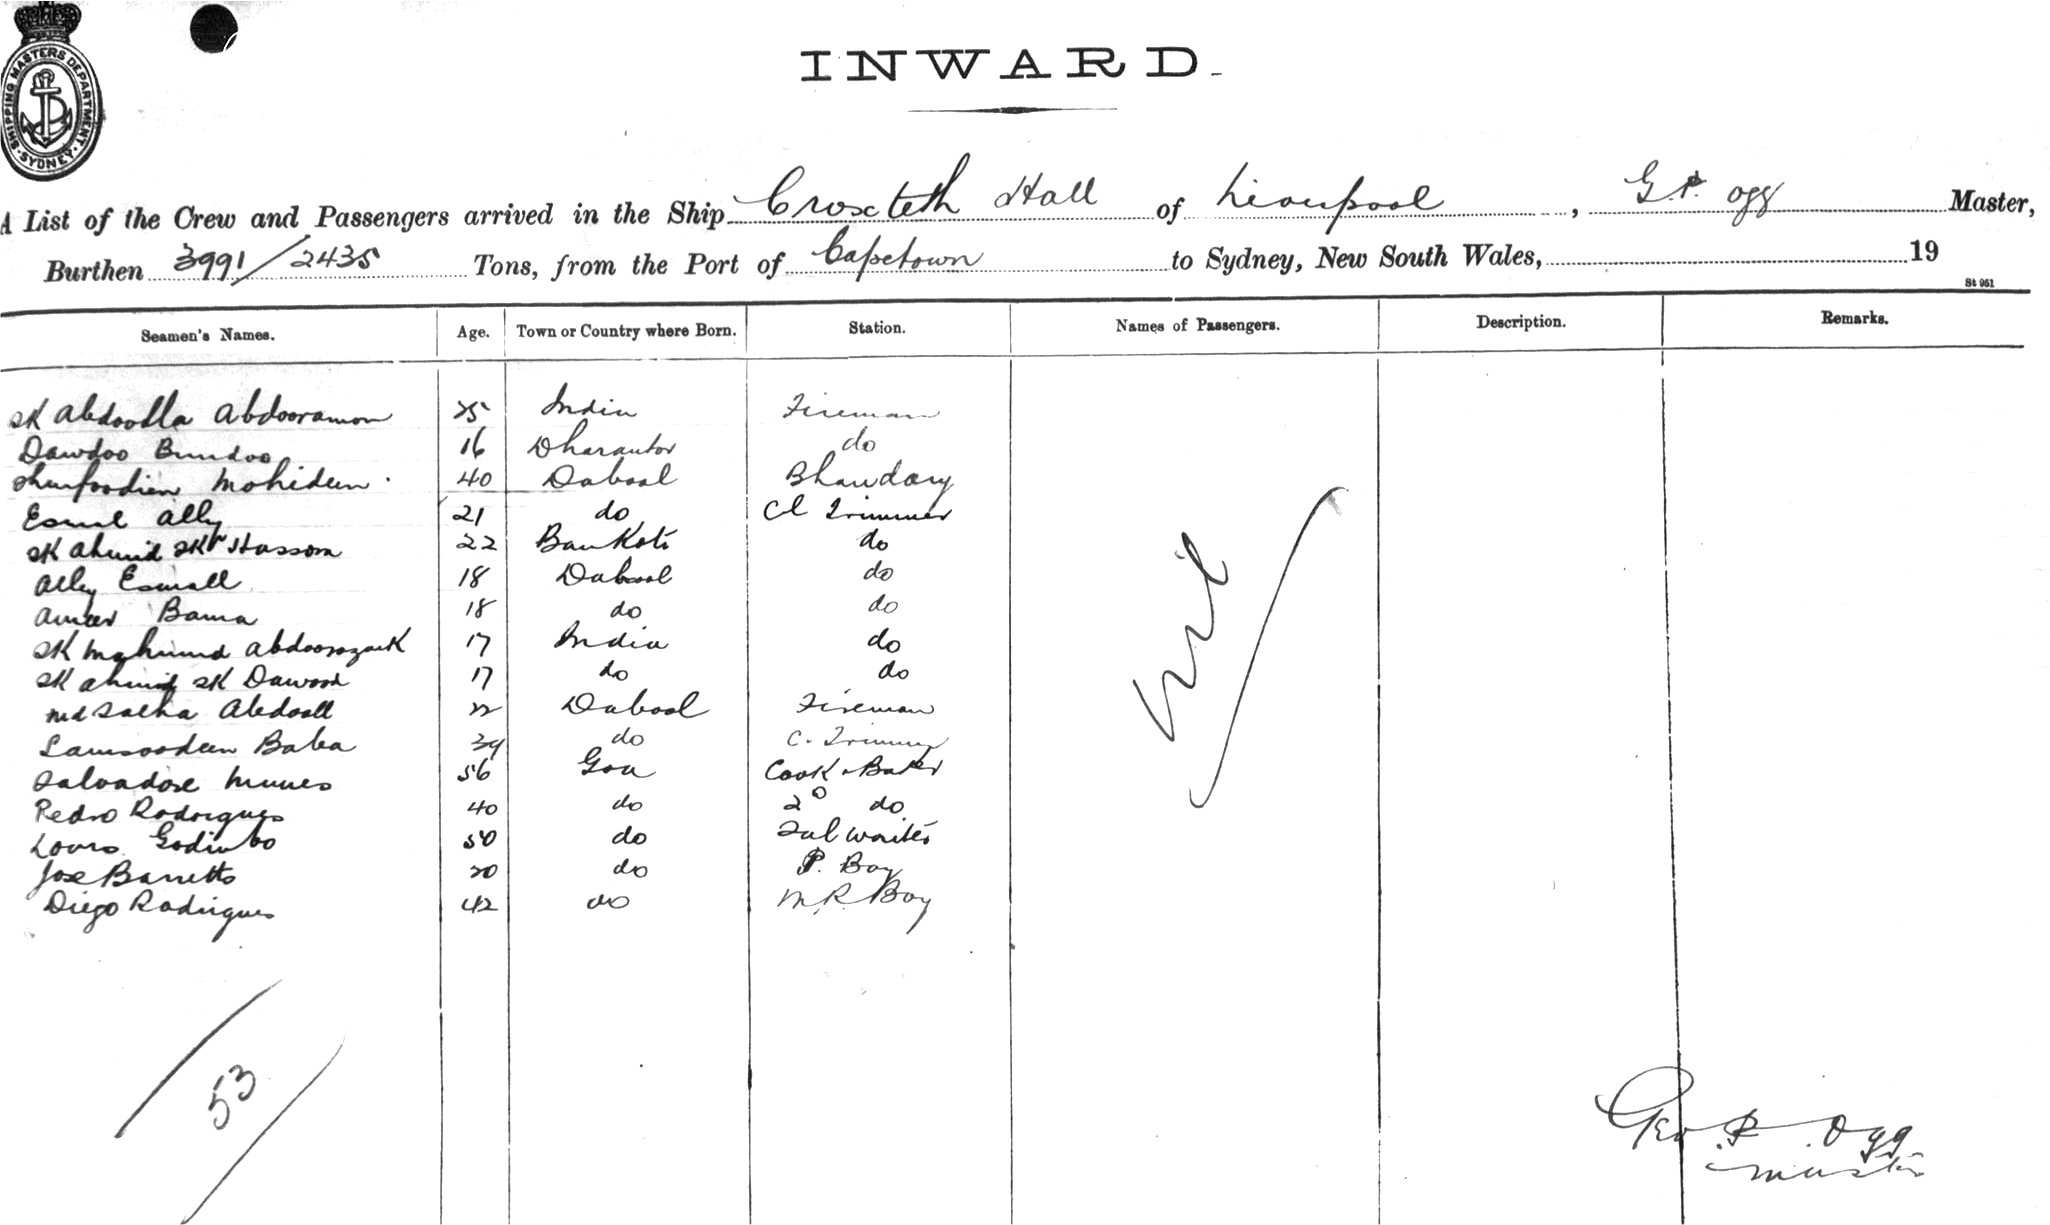 SHIPPING MASTERS DEPARTMENT. SYDNEY.
INWARD.
A List of the Crew and Passengers arrived in the Ship Croxteth Hall of Liverpool, G.P. Ogg Master,
Burthen 3991/2435 Tons, from the Port of Capetown to Sydney, New South Wales, 19
St 951
Seamen's Names. Age. Town or Country where Born. Station. Names of Passengers. Description. Remarks.
SK Abdoolla Abdooramon 25 India Fireman
Dawdoo Bundoo 16 Dharantor do
Mohideen 40 Dabool Bhandary
Esmal Ally 21 do Cl Trimmer
SK Ahmid SK Hassom 22 Bankoti do
Ally Esmall 18 Dabool do
Ameer Bama 18 do do
SK Mahmud Abdoorazack 17 India do
SK Ahmid SK Dawood 17 do do
Md Salha Abdooll 22 Dabool Fireman
Lamsoodeen Baba 39 do C. Trimmer
Salvadore Nunes 56 Goa Cook & Baker
Pedro Rodrigues 40 do 2D do
Godinho 50 do
Jose Barretto 20 do P. Boy
Diego Rodrigues 42 do M.R. Boy
Nil
53
Geo. P. Ogg
Master